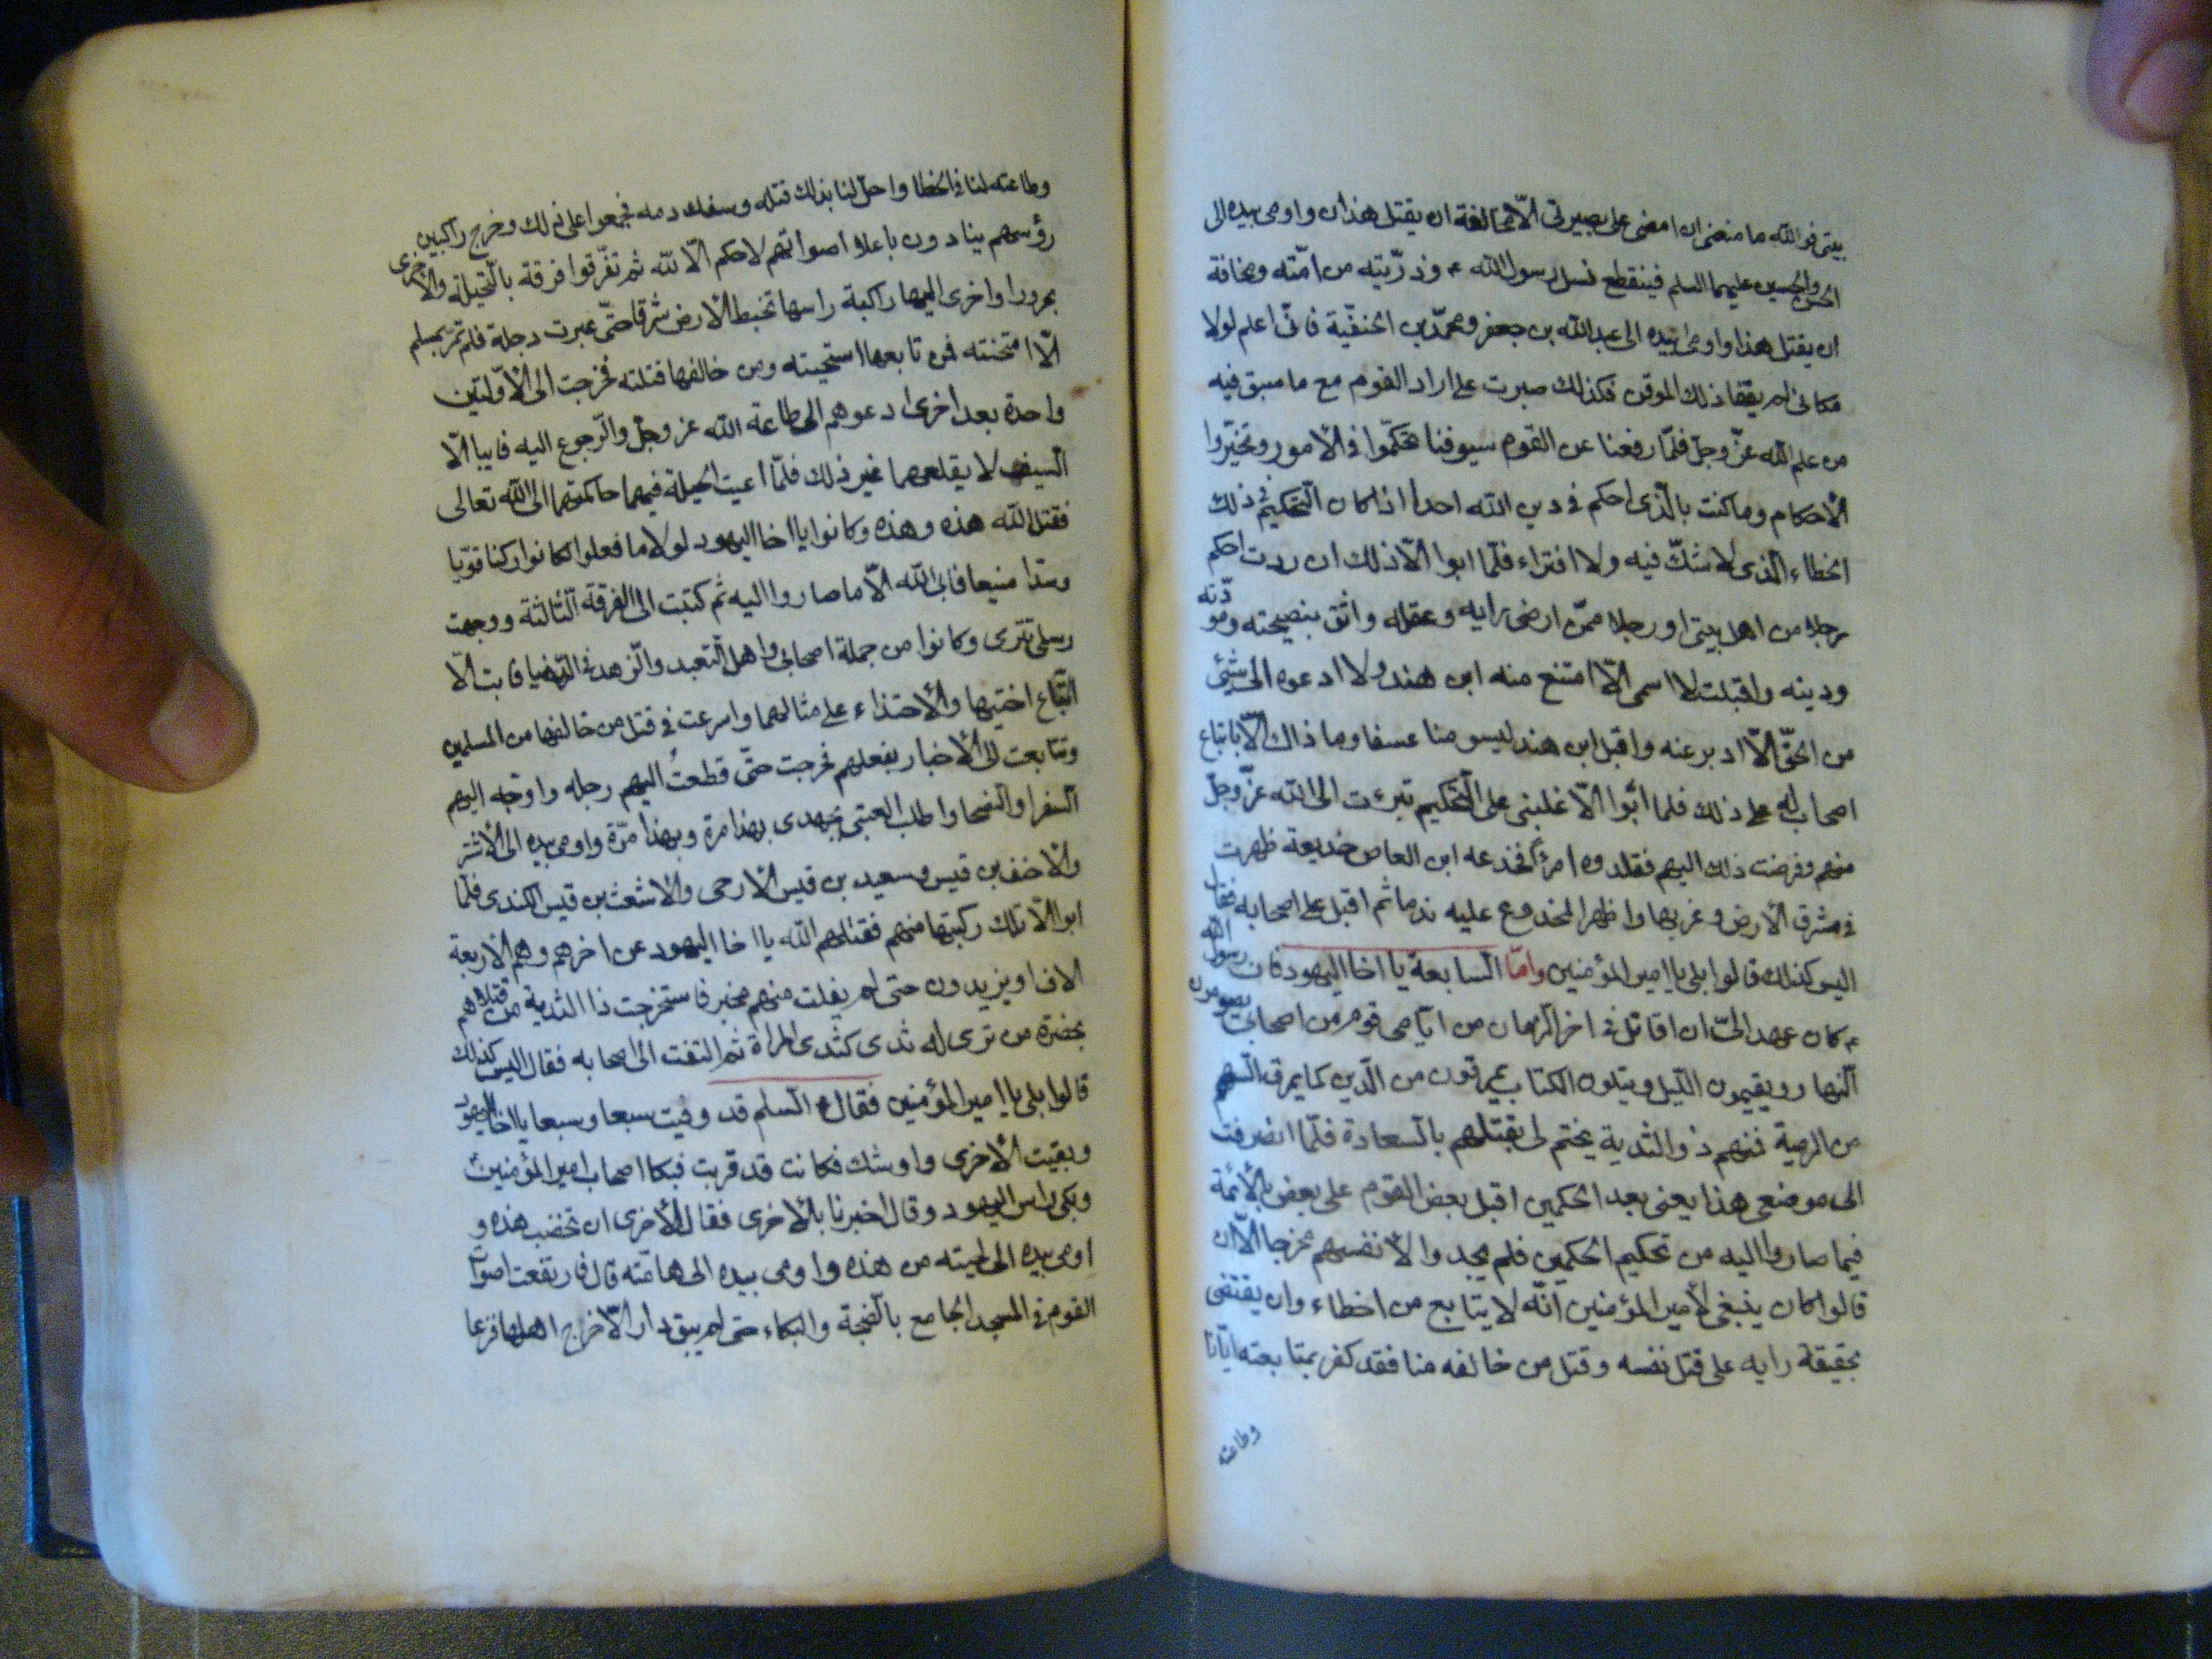 بيتى فوالله ما منعنى ان امضى على بصيرتى الّا مخالفة ان يقتل هذان واومى بيده الى
الحسن والحسين عليهما السلم فينقطع نسل رسول الله ص وذرّيته من امّته ومخافة
ان يقتل هذا واومى بيده الى عبدالله بن جعفر ومحمّد بن الحنفيّة فانّى اعلم لولا
مكانى لم يقفا ذلك الموقف فكذلك صبرت على اراد القوم مع ما سبق فيه
من علم الله عزّ وجلّ فلمّا رفعنا عن القوم سيوفنا تحكّموا فى الأمور وتخيّروا
الأحكام وما كنت بالّذى احكم فى دين الله احدا اذا كان التحكيم فى ذلك
الخطاء الّذى لا شكّ فيه ولا افتراء فلمّا ابوا الّا ذلك اردت احكم
رجلا من اهل بيتى او رجلا ممّن ارضى رايه وعقله واثق بنصيحته ومودّته
ودينه واقبلت لا اسمى الّا امتنع منه ابن هند ولا ادعوه الى شيئ
من الحقّ الّا ادبر عنه واقبل ابن هند ليسومنا عسفا وما ذاك الّا باتباع
اصحابى له على ذلك فلما ابوا الّا غلبتى على التحكيم تبرئت الى الله عزّ وجلّ
منهم وفوضت ذلك اليهم فقلدوه امرءا فخدعه ابن العاص خديعة ظهرت
فى شرق الأرض وغربها واظهر المخدوع عليه ندما ثم اقبل على اصحابه فقال
اليس كذلك قالوا بلى يا امير المؤمنين وامّا السابعة يا اخا اليهود فان رسول الله
ص كان عهد الىّ ان اقاتل فى اخر الزمان من ايّامى قوم من اصحابى يصومون
النهار ويقيمون الليل ويتلون الكتاب يمرقون من الدين كما يمرق السهم
من الرمية فيهم ذو الثدية يختم لى بقتلهم بالسعادة فلمّا انصرفت
الى موضعى هذا يعنى بعد الحكمين اقبل بعض القوم على بعض بالأئمة
فيما صاروا اليه من تحكيم الحكمين فلم يجدوا لأنفسهم مخرجا الّا ان
قالوا كان ينبغى لأمير المؤمنين انّه لا يتابع من اخطاء وان يقتضى
بحقيقة رايه على قتل نفسه وقتل من خالفه منا فقد كفر بمتابعته ايّانا
وطاعته
وطاعته لنا فى الخطا واحلّ لنا بذلك قتله وسفك دمه فجمعوا على ذلك وخرج راكبين
رؤسهم ينادون باعلا اصواتهم لا حكم الّا لله ثم تفرّقوا فرقة بالنخيلة والأخرى
بحرورا واخرى اليها راكبة راسها تخبط الأرض شرقا حتّى عبرت دجلة فلم تمرّ بمسلم
الّا امتحنته فمن تابعها استحيته ومن خالفها قتلته فخرجت الى الأوّلتين
واحدة بعد اخرى ادعوهم الى طاعة الله عز وجلّ والرجوع اليه فابيا الّا
السيف لا يقلعهما غير ذلك فلمّا اعيت الحيلة فيهما حاكمتهما الى الله تعالى
فقتل الله هذه وهذه وكانوا يا اخا اليهود لولا ما فعلوا لكانوا ركنا قويّا
وسدا منيعا فابى الله الّا ما صاروا اليه ثم كتبت الى الفرقة الثالثة ووجهت
رسلى تترى وكانوا من جملة اصحابى واهل التعبد والزهد فى الدنيا فابت الّا
اتّباع اختيها والأحتذاء على مثالهما واسرعت فى قتل من خالفها من المسلمين
وتتابعت الى الأخبار بفعلهم فخرجت حتّى قطعت اليهم رجله واوجّه اليهم
السفرا والنصحا واطلب العتبى بجهدى بهذا مرة وبهذا مرّة واومى بيده الى الأشتر
والأحنف بن قيس وسعيد بن قيس الأرحبى والأشعث بن قيس الكندى فلمّا
ابوا الّا تلك ركبتها منهم فقتلهم الله يا اخا اليهود عن اخرهم وهم الأربعة
الاف او يزيدون حتى لم يفلت منهم مخبر فاستخرجت ذا الثدية من قتلاهم
بحضرة من ترى له ثدى كثدى المراة ثم التفت الى اصحابه فقال اليس كذلك
قالوا بلى يا امير المؤمنين فقال ع السلم قد وفيت سبعا وسبعا يا اخا اليهود
وبقيت الأخرى واوشك فكانت قد قربت فبكا اصحاب امير المؤمنين
وبكى راس اليهود وقال اخبرنا بالأخرى فقال الأخرى ان تخضب هذه و
اومى بيده الى لحيته من هذه واومى بيده الى هامّته قال فارتفعت اصوات
القوم فى المسجد الجامع بالضجة والبكاء حتى لم يبق دار الّا خرج اهلها فزعا